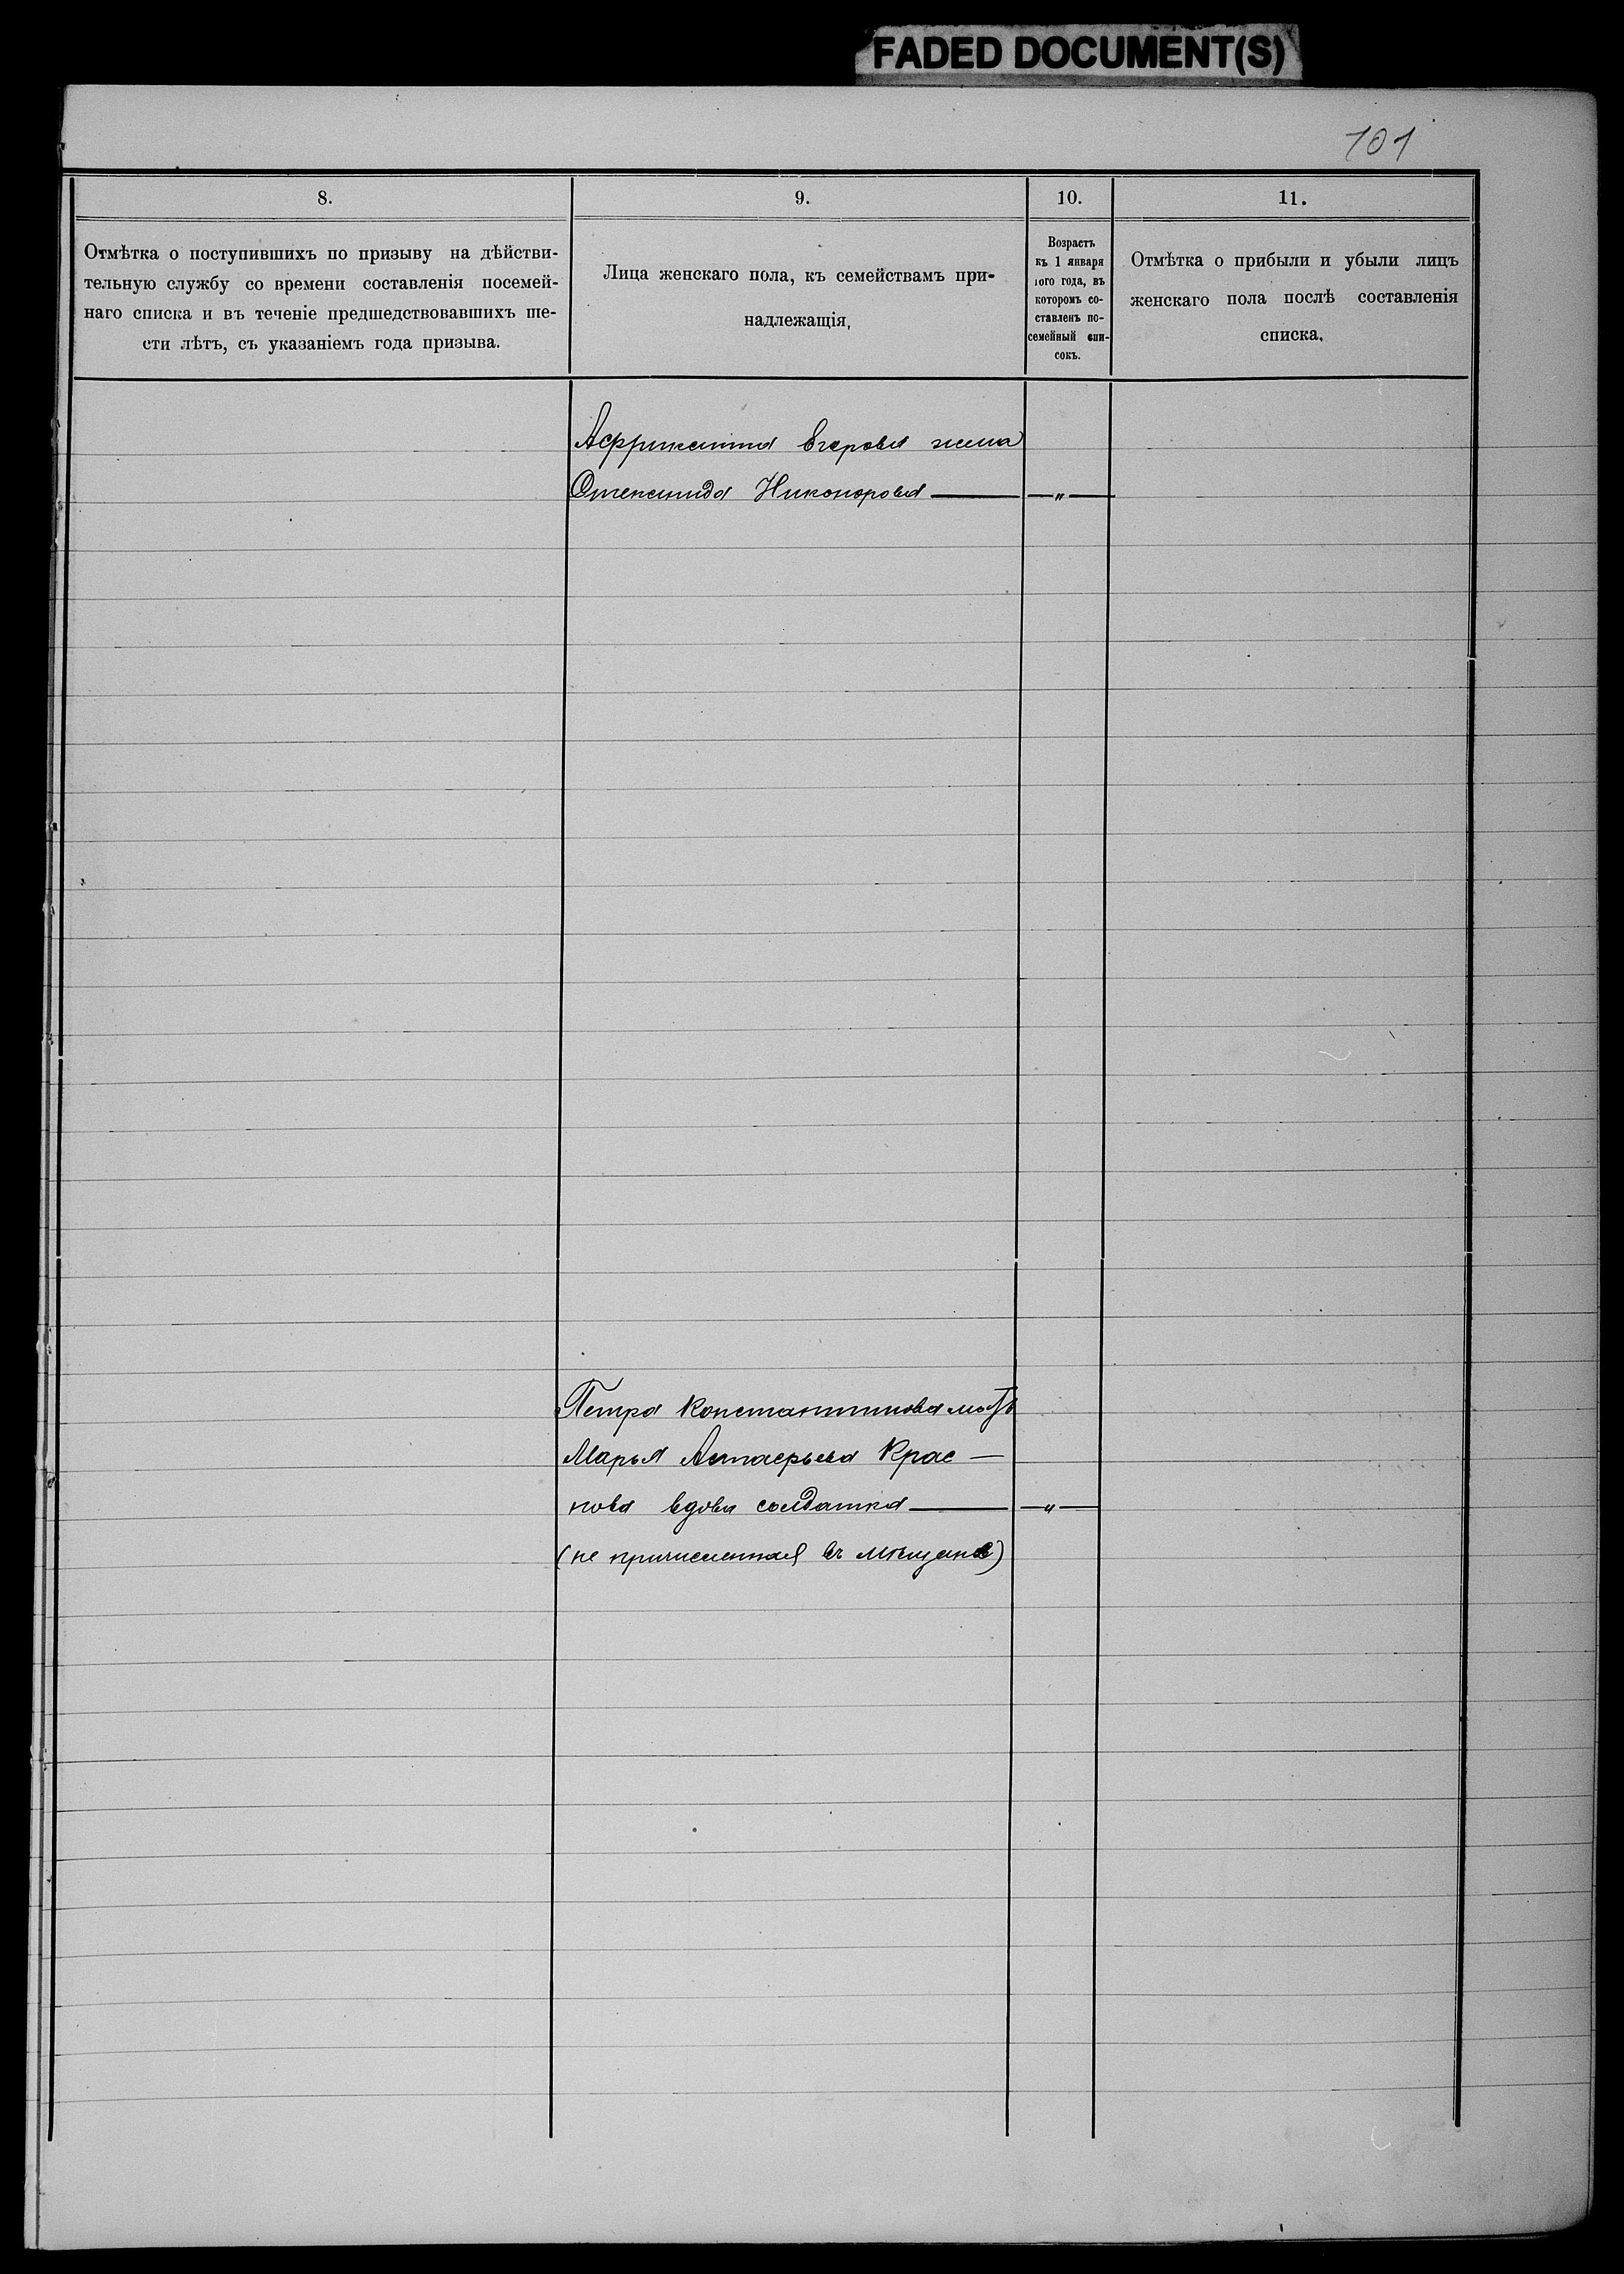 FADED DOCUMENT(S)
101
8.
9.
10.
11.
Отмѣтка о поступившихъ по призыву на дѣйстви-
тельную службу со времени составленія посемей-
наго списка и въ теченіе предшедствовавшихъ ше-
сти лѣтъ, съ указаніемъ года призыва.
Лица женскаго пола, къ семействамъ при-
надлежащія,
Возрастъ
къ 1 января
1ого года, въ
которомъ со-
ставленъ по-
семейный спи-
сокъ.
Отмѣтка о прибыли и убыли лицъ
женскаго пола послѣ составленія
списка.
Аффиксентия Егорова жена
Никонорова — „ —
Петра Константинова мать
Марья Астафьева Крас —
нова вдова солдатка — „ —
(не причисленная въ мѣщане)